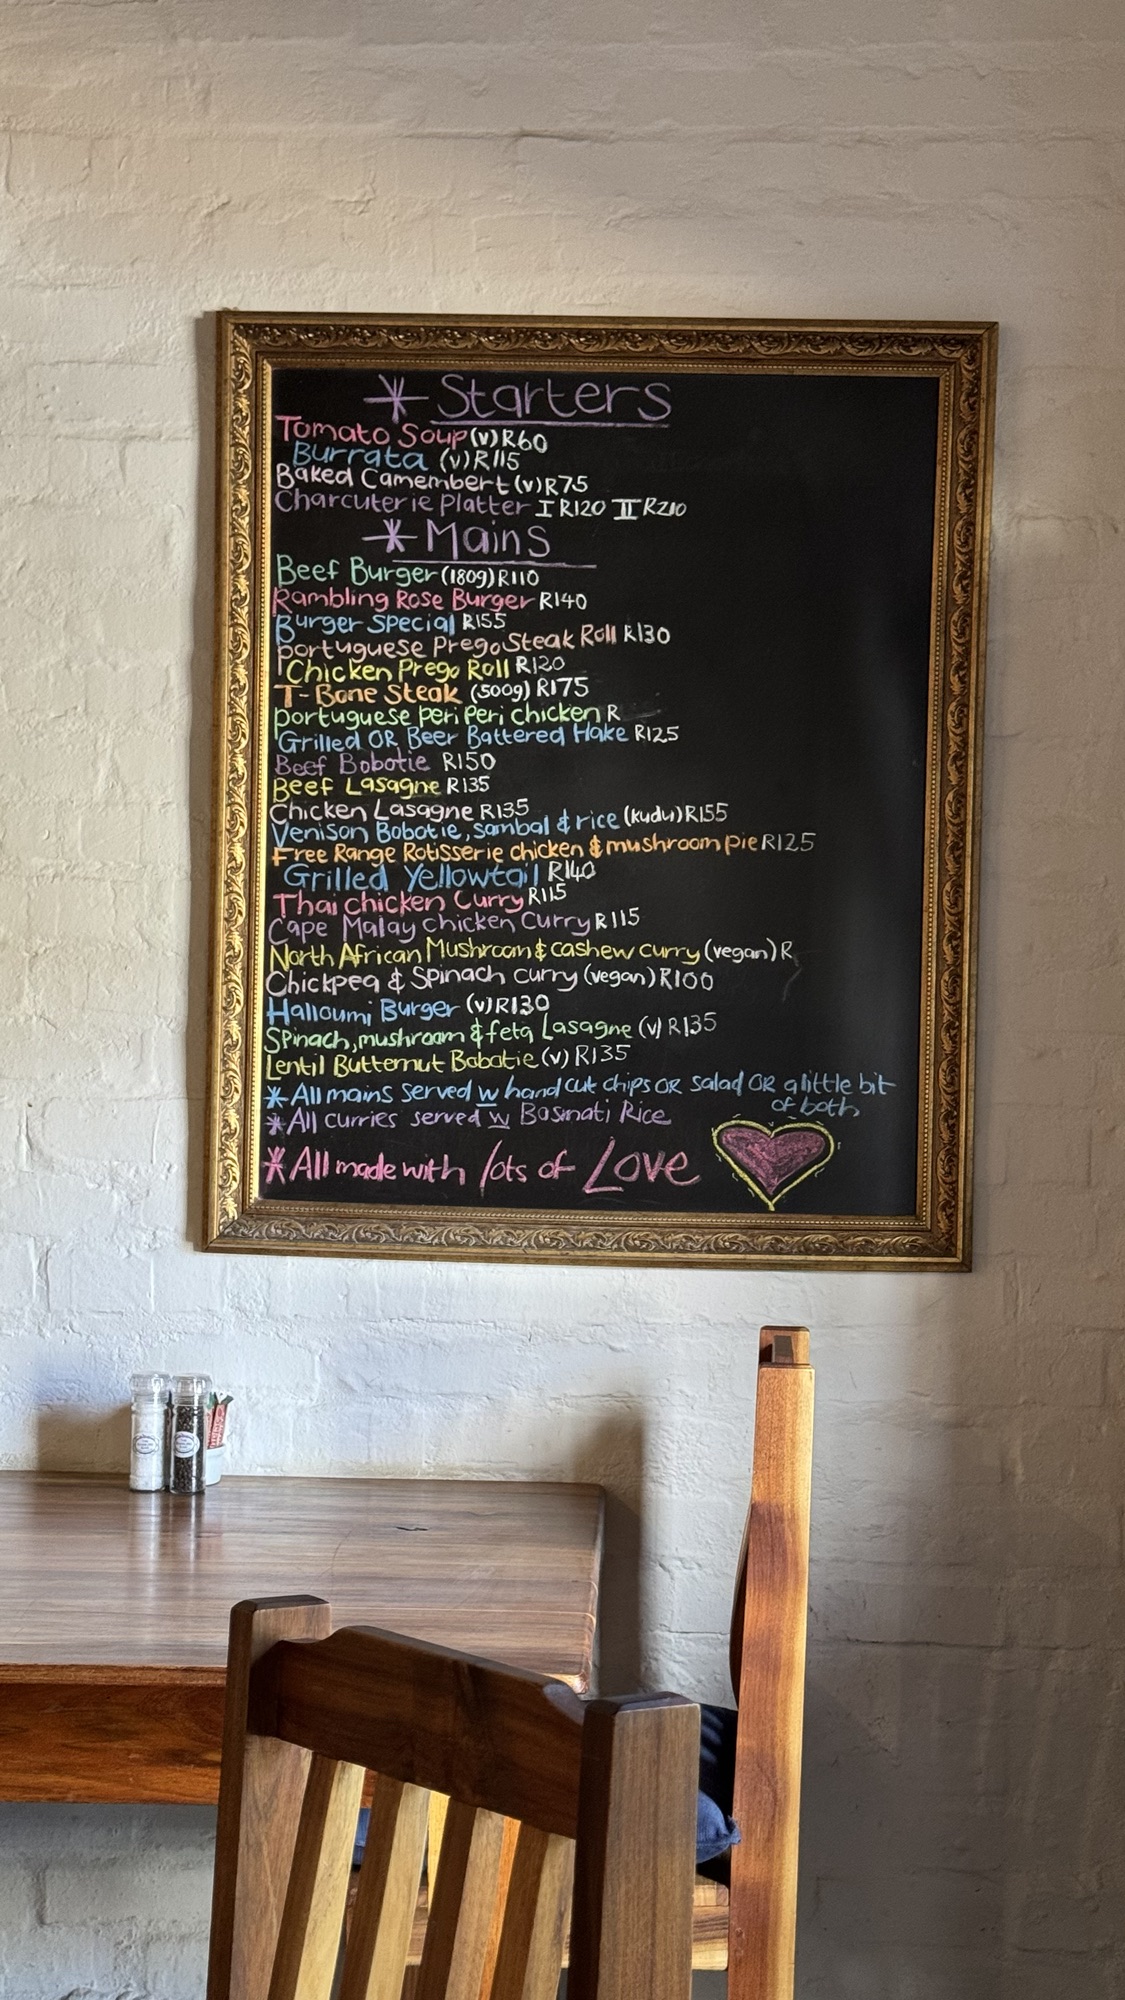 * Starters
Tomato Soup (v) R60
Burrata (v) R115
Baked Camembert (v) R75
Charcuterie Platter I R120 II R210
* Mains
Beef Burger (180g) R110
Rambling Rose Burger R140
Burger Special R155
Portuguese Prego Steak Roll R130
Chicken Prego Roll R120
T-Bone Steak (500g) R175
Portuguese Peri Peri chicken R
Grilled OR Beer Battered Hake R125
Beef Bobotie R150
Beef Lasagne R135
Chicken Lasagne R135
Venison Bobotie, sambal & rice (kudu) R155
Free Range Rotisserie chicken & mushroom pie R125
Grilled Yellowtail R140
Thai chicken Curry R115
Cape Malay chicken Curry R115
North African Mushroom & cashew curry (vegan) R
Chickpea & Spinach curry (vegan) R100
Halloumi Burger (v) R130
Spinach, mushroom & feta Lasagne (v) R135
Lentil Butternut Bobotie (v) R135
* All mains served w hand cut chips OR salad OR a little bit
of both
* All curries served w Basmati Rice
* All made with lots of Love